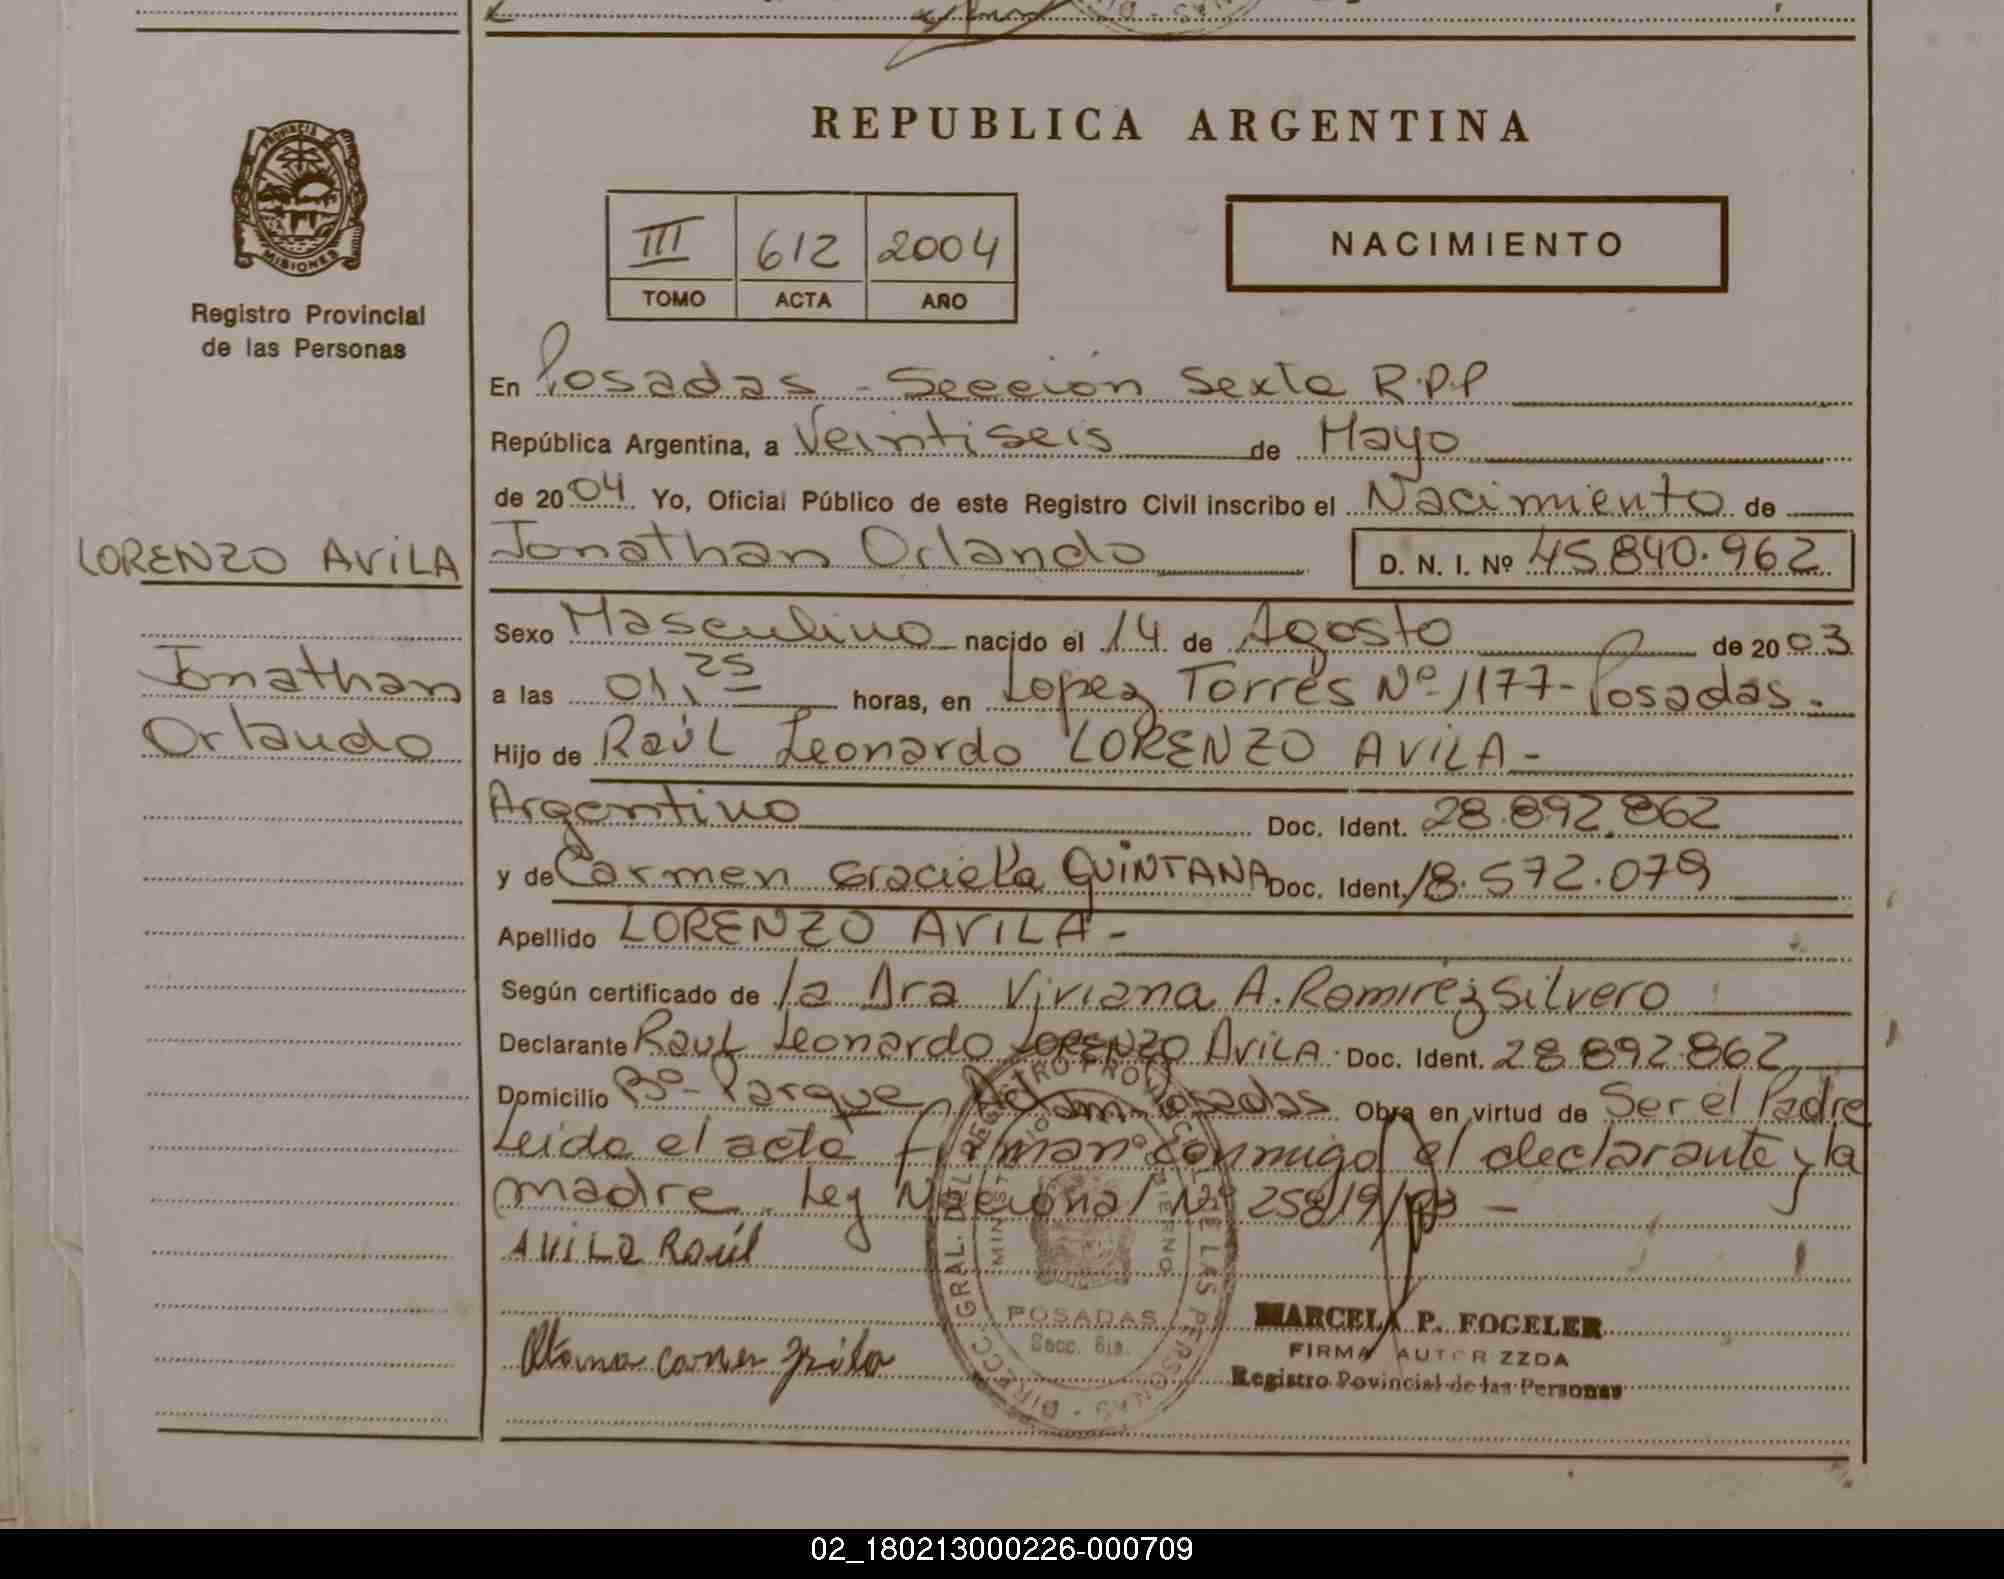 REPUBLICA ARGENTINA
PROVINCIA DE
MISIONES
Registro Provincial
de las Personas
III 612 2004
TOMO ACTA AÑO
NACIMIENTO
En Posadas - Sección Sexta R.P.P
República Argentina, a Veintiseis de Mayo
de 2004 Yo, Oficial Público de este Registro Civil inscribo el Nacimiento de
LORENZO AVILA
Jonathan Orlando D. N. I. Nº 45.840.962
Sexo Masculino nacido el 14 de Agosto de 2003
Jonathan
a las 01,25 horas, en Lopez Torres Nº 1177- Posadas.
Orlando
Hijo de Raúl Leonardo LORENZO AVILA -
Argentino Doc. Ident. 28.892.862
y de Carmen Graciela QUINTANA Doc. Ident. 18.572.079
Apellido LORENZO AVILA -
Según certificado de la Dra Viviana A. Ramirez Silvero
Declarante Raul Leonardo LORENZO AVILA. Doc. Ident. 28.892.862
Domicilio Bº- Parque Adam Posadas Obra en virtud de Ser el Padre
Leida el acta firman conmigo el declarante y la
madre. Ley Nacional Nº 25819/03 -
AVILA Raúl
DIRECC. GRAL. DEL REGISTRO PROVINCIAL DE LAS PERSONAS
POSADAS
Secc. 6ta.
MARCELA P. FOGELER
FIRMA AUTOR ZZDA
Registro Povincial de las Personas
02_180213000226-000709